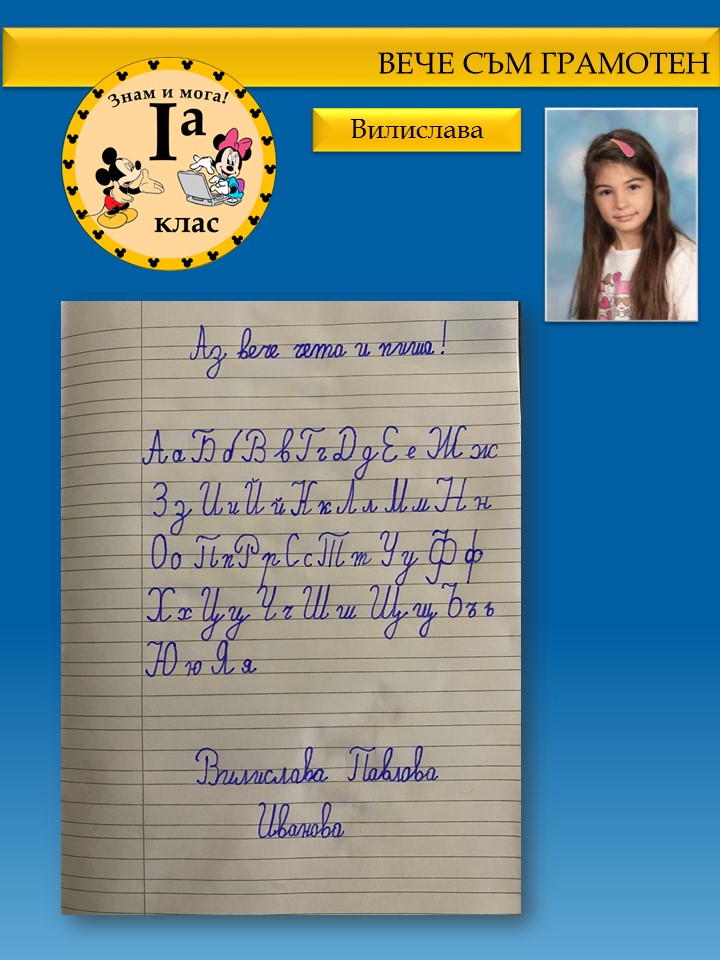 ВЕЧЕ СЪМ ГРАМОТЕН
Знам и мога!
Iа
клас
Вилислава
Аз вече чета и пиша!
А а Б б В в Г г Д д Е е Ж ж
З з И и Й й К к Л л М м Н н
О о П п Р р С с Т т У у Ф ф
Х х Ц ц Ч ч Ш ш Щ щ Ъ ъ ь
Ю ю Я я
Вилислава Павлова
Иванова